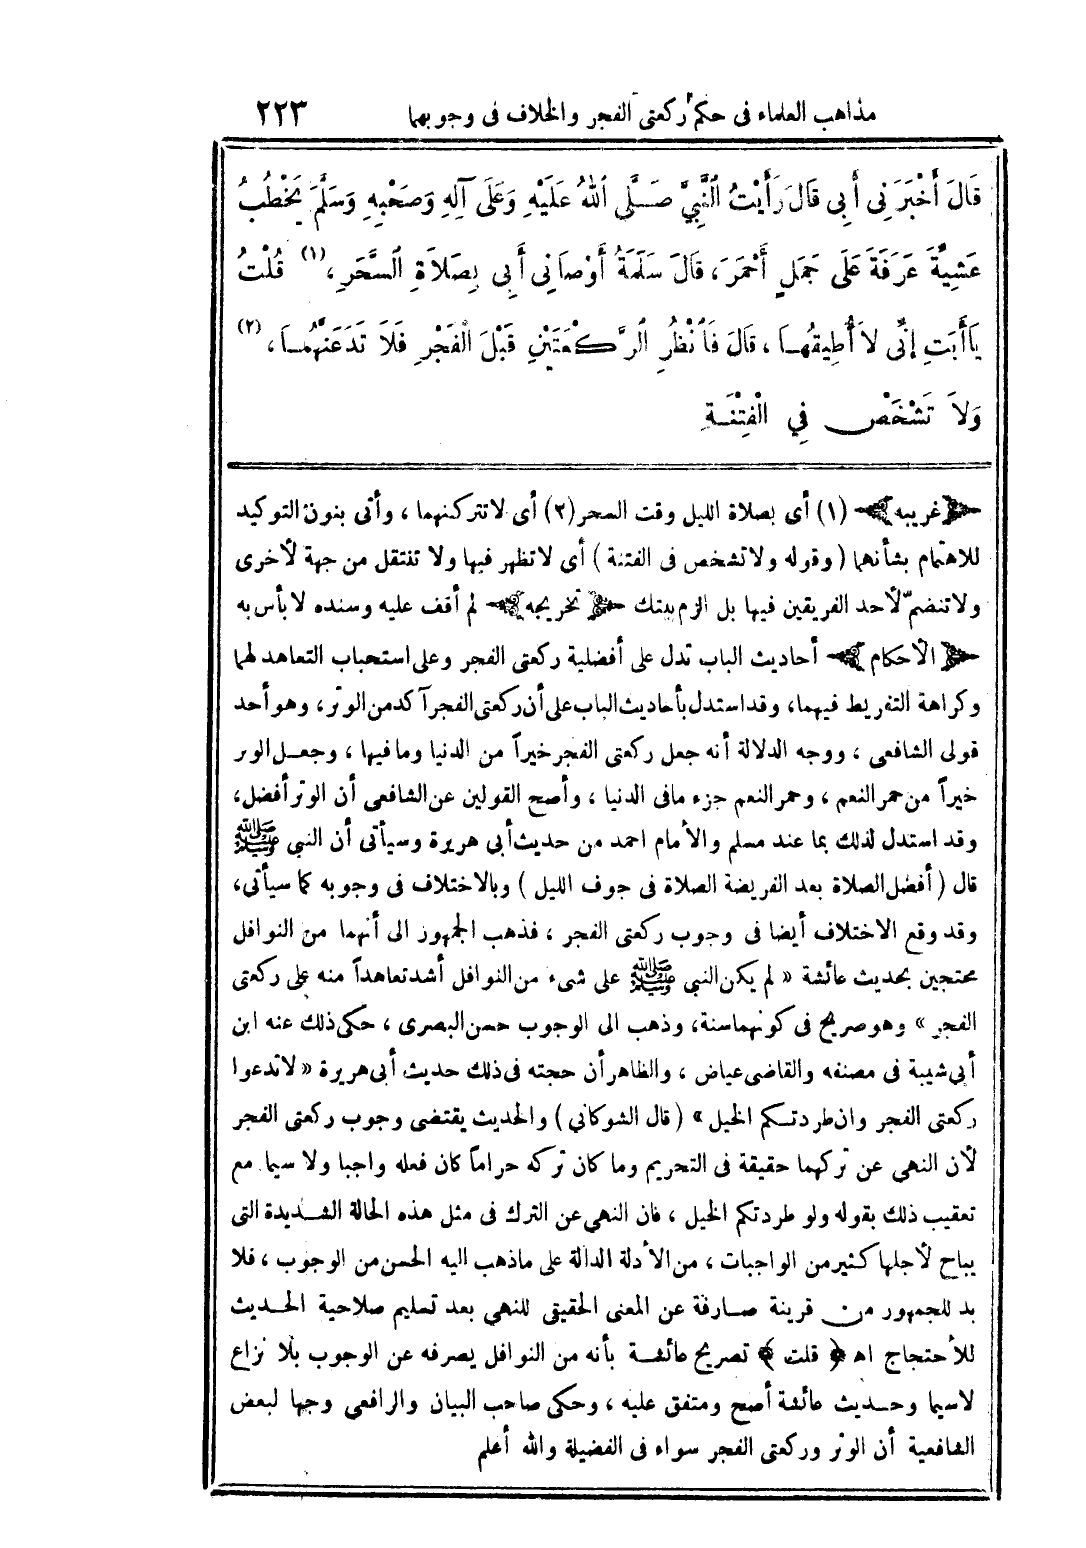 مذاهب العلماء فى حكم ركعتى الفجر والخلاف فى وجوبهما ٢٢٣
قَالَ أَخْبَرَنِى أَبِى قَالَ رَأَيْتُ النَّبِيَّ صَلَّى اللهُ عَلَيْهِ وَعَلَى آلِهِ وَصَحْبِهِ وَسَلَّمَ يَخْطُبُ
عَشِيَّةَ عَرَفَةَ عَلَى جَمَلٍ أَحْمَرَ، قَالَ سَلَمَةُ أَوْصَانِى أَبِى بِصَلاَةِ السَّحَرِ،(١) قُلْتُ
يَاأَبَتِ إِنِّى لاَ أُطِيقُهَا، قَالَ فَانْظُرِ الرَّكْعَتَيْنِ قَبْلَ الْفَجْرِ فَلاَ تَدَعَنَّهُمَا،(٢)
وَلاَ تَشْخَصْ فِي الْفِتْنَةِ
﴿غريبه﴾ (١) أى بصلاة الليل وقت السحر (٢) أى لاتتركنهما، وأتى بنون التوكيد
للاهتمام بشأنهما (وقوله ولاتشخص فى الفتنة) أى لاتظهر فيها ولا تنتقل من جهة لأخرى
ولاتنضمّ لأحد الفريقين فيها بل الزم بيتك ﴿تخريجه﴾ لم أقف عليه وسنده لابأس به
﴿الأحكام﴾ أحاديث الباب تدل على أفضلية ركعتى الفجر وعلى استحباب التعاهد لهما
وكراهة التفريط فيهما، وقد استدل بأحاديث الباب على أن ركعتى الفجر آكد من الوتر، وهو أحد
قولى الشافعى، ووجه الدلالة أنه جعل ركعتى الفجر خيراً من الدنيا ومافيها، وجعل الوتر
خيراً من حمر النعم، وحمر النعم جزء مافى الدنيا، وأصح القولين عن الشافعى أن الوتر أفضل،
وقد استدل لذلك بما عند مسلم والأمام احمد من حديث أبى هريرة وسيأتى أن النبى ﷺ
قال (أفضل الصلاة بعد الفريضة الصلاة فى جوف الليل) وبالاختلاف فى وجوبه كما سيأتى،
وقد وقع الاختلاف أيضا فى وجوب ركعتى الفجر، فذهب الجمهور الى أنهما من النوافل
محتجين بحديث عائشة « لم يكن النبى ﷺ على شىء من النوافل أشد تعاهداً منه على ركعتى
الفجر » وهو صريح فى كونهما سنة، وذهب الى الوجوب حسن البصرى، حكى ذلك عنه ابن
أبى شيبة فى مصنفه والقاضى عياض، والظاهر أن حجته فى ذلك حديث أبى هريرة « لاتدعوا
ركعتى الفجر وان طردتكم الخيل » (قال الشوكاني) والحديث يقتضى وجوب ركعتى الفجر
لأن النهى عن تركهما حقيقة فى التحريم وما كان تركه حراماً كان فعله واجبا ولا سيما مع
تعقيب ذلك بقوله ولو طردتكم الخيل، فان النهى عن الترك فى مثل هذه الحالة الشديدة التى
يباح لأجلها كثير من الواجبات، من الأدلة الدالة على ماذهب اليه الحسن من الوجوب، فلا
بد للجمهور من قرينة صارفة عن المعنى الحقيقى للنهى بعد تسليم صلاحية الحديث
للأحتجاج اه ﴿ قلت ﴾ تصريح عائشة بأنه من النوافل يصرفه عن الوجوب بلا نزاع
لاسيما وحديث عائشة أصح ومتفق عليه، وحكى صاحب البيان والرافعي وجها لبعض
الشافعية أن الوتر وركعتى الفجر سواء فى الفضيلة والله أعلم